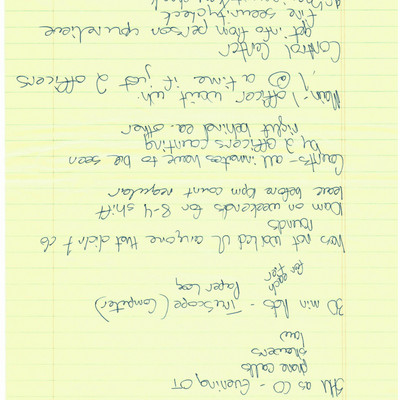 as CO - Evening OT
phone calls
showers
law
30 min - TruScope (Computer)
for each tier Paper Log
not worked anyone that didn't do
rounds
10am on weekends for 8-4 shift
leave before count regular
Counts - all inmates have to be seen
by 2 officers counting
right behind ea. other
Main - 1 officer wait
1 @ a time if just 2 officers
Control Center
get info from person you relieve
fire security check